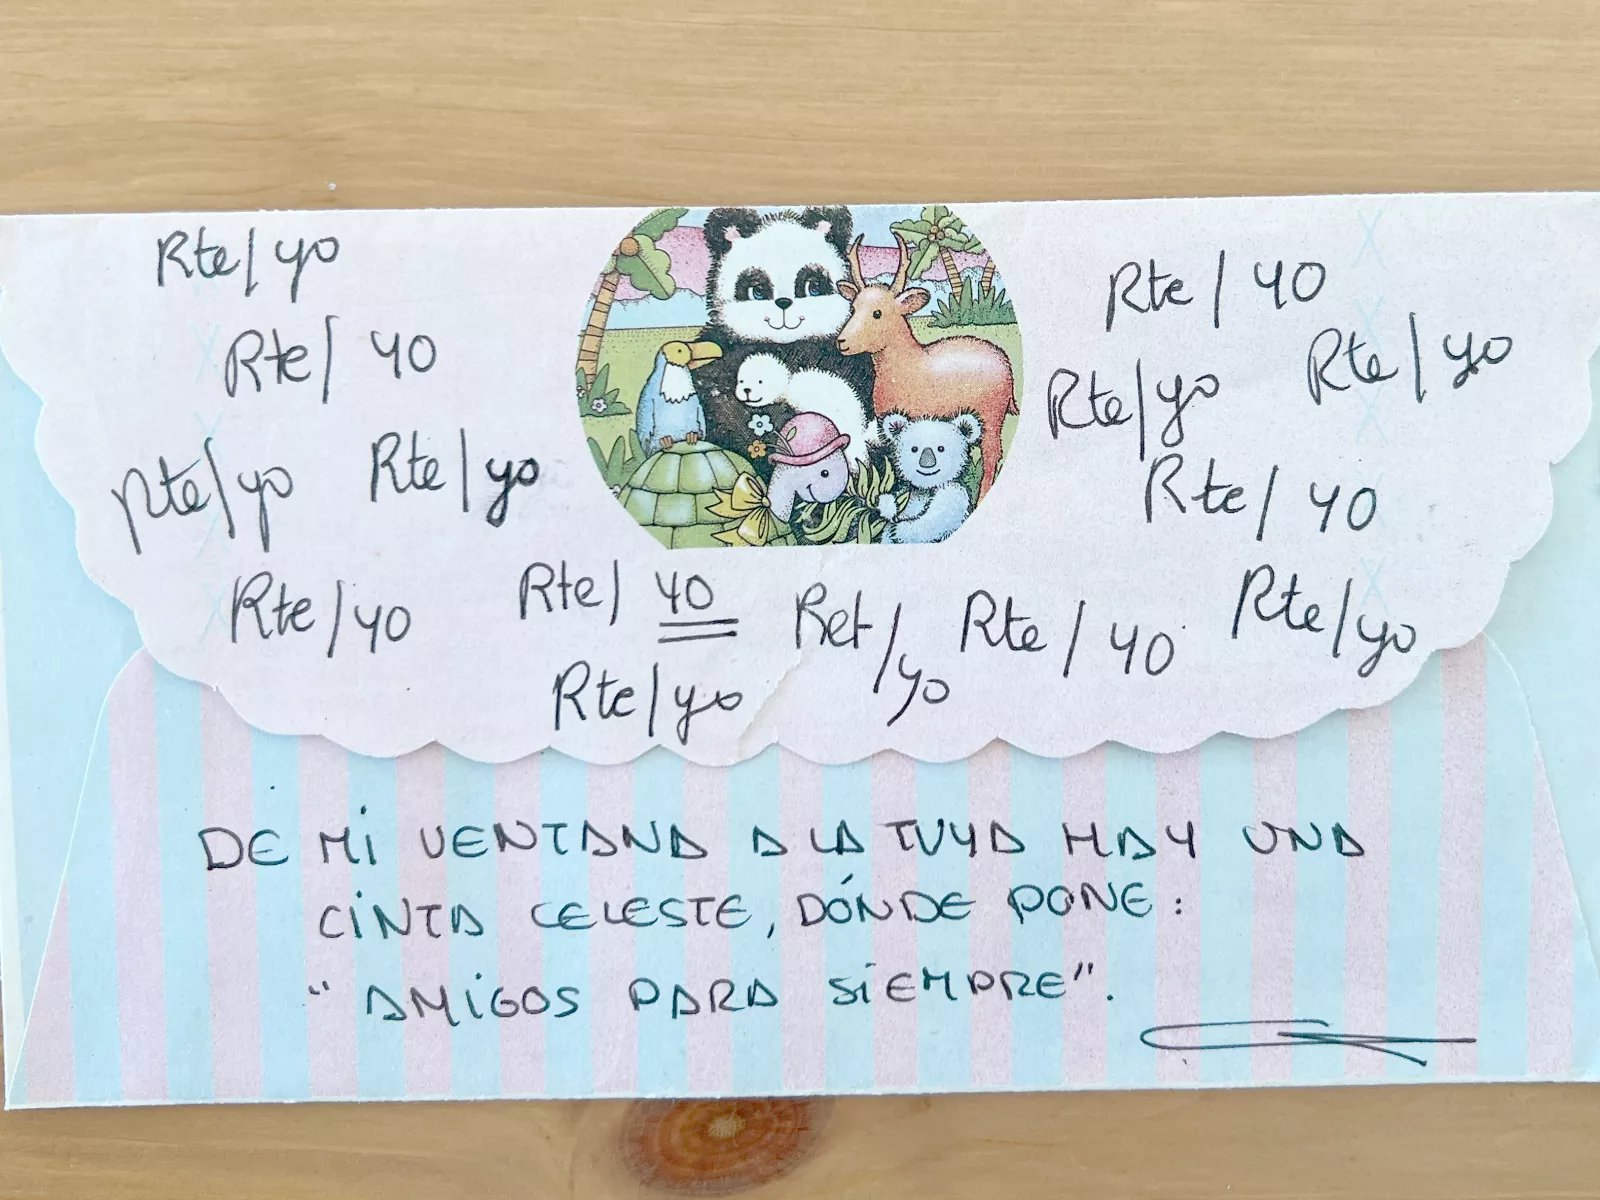 Rte/yo
Rte/ yo
Rte/yo
Rte/yo
Rte/yo
Rte/ yo
Rte/yo
Ret/yo
Rte/ yo
Rte/ yo
Rte/yo
Rte/yo
Rte/ yo
Rte/yo
DE MI VENTANA A LA TUYA HAY UNA
CINTA CELESTE, DÓNDE PONE:
"AMIGOS PARA SIEMPRE".